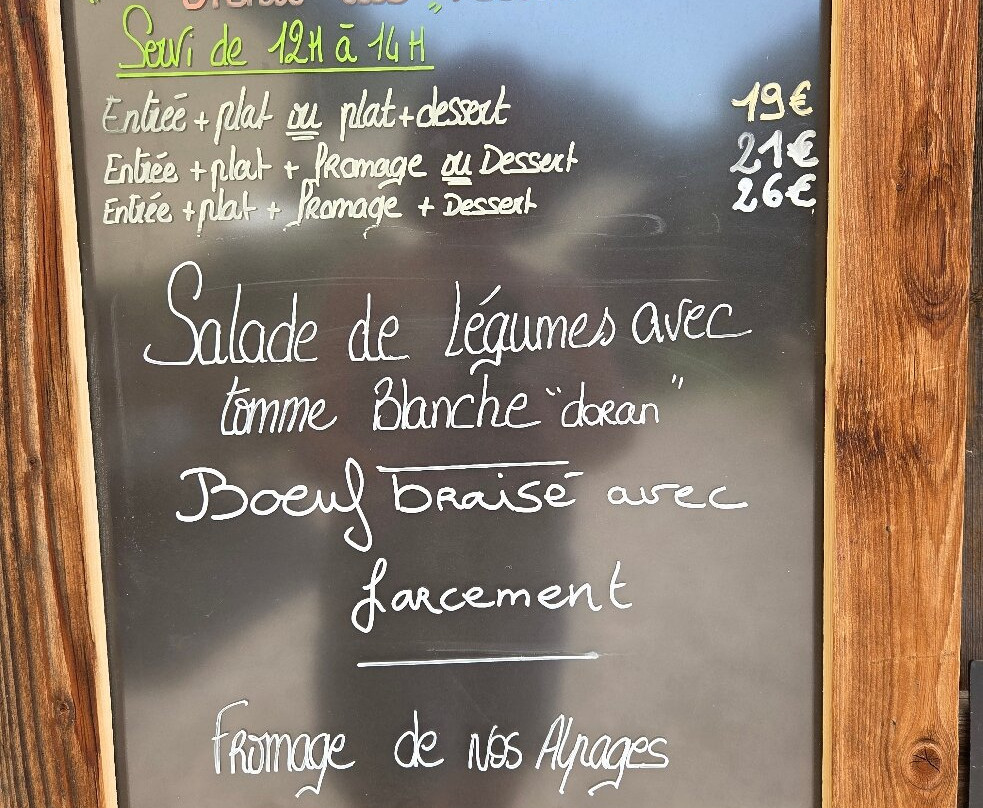 Servi de 12H à 14H
Entrée + plat ou plat + dessert 19€
Entrée + plat + fromage ou Dessert 21€
Entrée + plat + fromage + Dessert 26€
Salade de légumes avec
tomme Blanche "doran"
Boeuf braisé avec
farcement
Fromage de nos Alpages